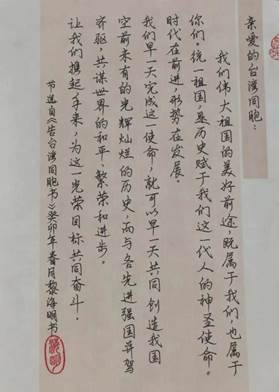 亲爱的台湾同胞：
我们伟大祖国的美好前途，既属于我们，也属于
你们。统一祖国，是历史赋于我们这一代人的神圣使命。
时代在前进，形势在发展。
我们早一天完成这一使命，就可以早一天共同创造我国
空前未有的光辉灿烂的历史，而与各先进强国并驾
齐驱，共谋世界的和平、繁荣和进步。
让我们携起手来，为这一光荣目标共同奋斗！
节选自《告台湾同胞书》癸卯年春月黎海明书